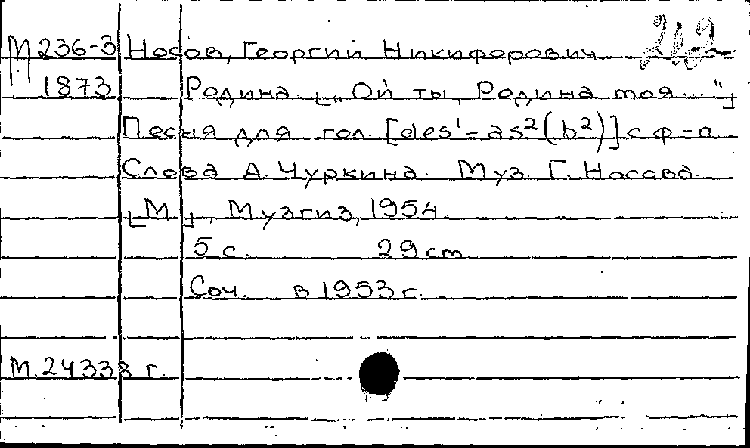 М 236-3 Носов, Георгий Никифорович
1873 Родина [„Ой ты, Родина моя..."]
Песня для гол. [des¹-as²(b²)] с ф-п.
Слова А. Чуркина. Муз. Г. Носова
[М.], Музгиз, 1954.
5 с. 29 cm.
Соч. в 1953 г.
М. 24338 г.